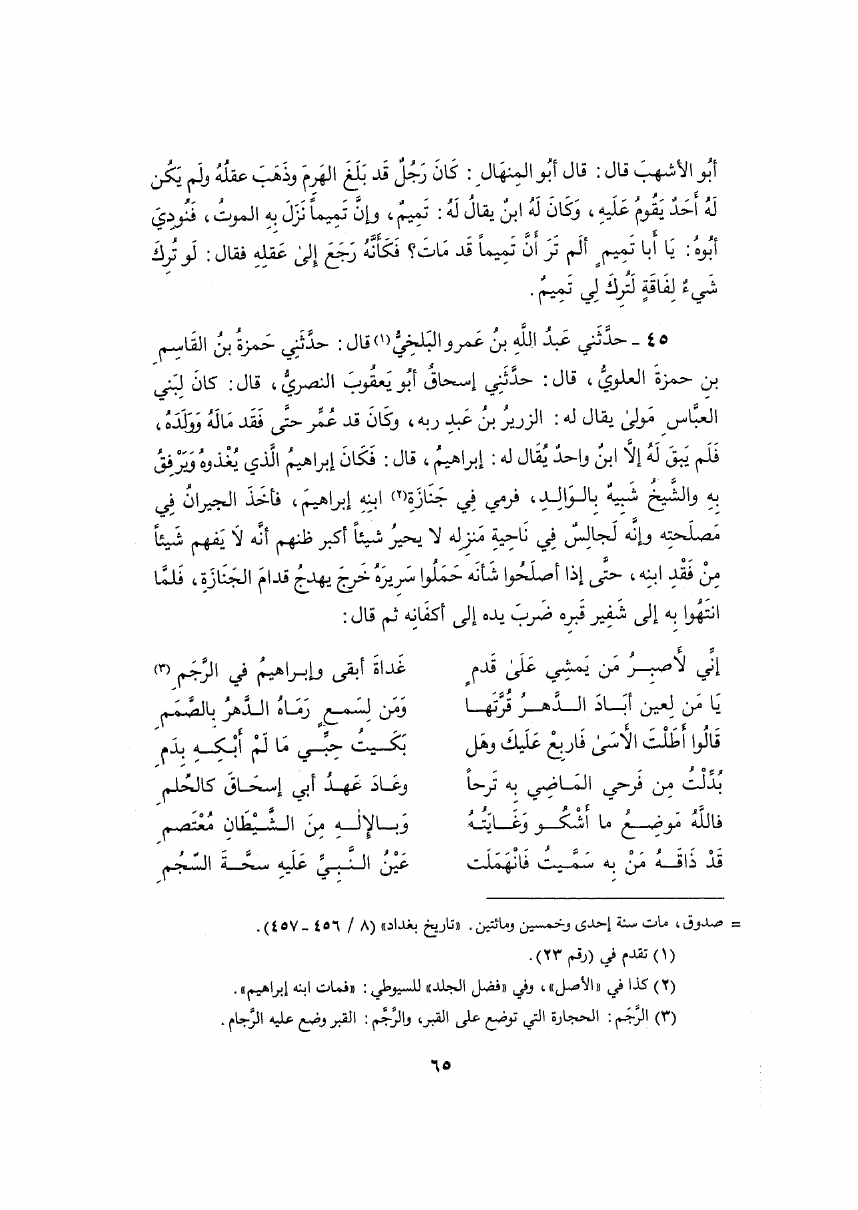 أبُو الأشهبَ قال: قال أبُو المِنهَالِ: كَانَ رَجُلٌ قَد بَلَغَ الهَرِمَ وذَهَبَ عقلُهُ ولَم يَكُن
لَهُ أَحَدٌ يَقُومُ عَلَيهِ، وَكَانَ لَهُ ابنٌ يقالُ لَهُ: تَمِيمٌ، وإنَّ تَمِيماً نَزَلَ بِهِ الموتُ، فَنُودِيَ
أبُوهُ: يَا أَبا تَمِيمٍ ألَم تَرَ أنَّ تَمِيماً قَد مَاتَ؟ فَكَأنَّهُ رَجَعَ إلىٰ عَقلِهِ فقال: لَو تُرِكَ
شَيءٌ لِفَاقَةٍ لَتُرِكَ لِي تَمِيمٌ.
٤٥ ـ حدَّثَني عَبدُ اللَّهِ بنُ عَمرو البَلخِيُّ(١) قال: حدَّثَنِي حَمزةُ بنُ القَاسِمِ
بنِ حمزةَ العلويُّ، قال: حدَّثَنِي إسحاقُ أبُو يَعقُوبَ النصريُّ، قال: كانَ لِبَني
العبَّاسِ مَولىٰ يقال له: الزريرُ بنُ عَبدِ ربه، وكَانَ قد عُمِّر حتَّى فَقَد مَالَهُ وَوَلَدَه،
فَلَم يَبقَ لَهُ إلَّا ابنٌ واحدٌ يُقَال له: إبراهيمُ، قال: فَكَانَ إبراهيمُ الَّذي يُغْذوهُ وَيَرْفِقُ
بِهِ والشَّيخُ شَبِيهٌ بِالوَالِدِ، فرمي فِي جَنَازَةِ(٢) ابنِهِ إبراهيمَ، فأخَذَ الجيرانُ فِي
مَصلَحتِه وإنَّه لَجالِسٌ فِي نَاحِيةِ مَنزِله لا يحيرُ شيئاً أكبر ظنهم أنَّه لاَ يَفهم شَيئاً
مِنْ فَقْدِ ابنِه، حتَّى إذا أصلَحُوا شَأنَه حَمَلُوا سَرِيرَهُ خَرجَ يهدجُ قدامَ الجَنَازَةِ، فلمَّا
انتَهُوا به إلى شَفِيرِ قَبرِه ضَربَ يده إلى أكفَانِه ثم قال:
إنِّي لأصبِرُ مَن يَمشِي عَلَىٰ قَدمٍ غَداةَ أبقى وإبراهيمُ في الرَّجَمِ(٣)
يَا مَن لِعين أبَادَ الدَّهرُ قُرَّتَها وَمَن لِسَمعٍ رَمَاهُ الدَّهرُ بالصَّمَمِ
قَالُوا أطَلْتَ الأسَىٰ فَاربِعْ عَلَيكَ وهَل بَكَيتُ حِبِّي مَا لَمْ أبْكِهِ بِدَمِ
بُدِّلْتُ مِن فَرحي المَاضِي بِه تَرحاً وعَادَ عَهدُ أبي إسحَاقَ كالحُلمِ
فاللَّهُ مَوضِعُ ما أشْكُو وَغَايَتُهُ وَبالإلٰهِ مِنَ الشَّيْطَانِ مُعْتَصمِ
قَدْ ذَاقَهُ مَنْ بِه سَمَّيتُ فَانْهَمَلَت عَيْنُ النَّبِيِّ عَلَيهِ سحَّةَ السّجُمِ
= صدوق، مات سنة إحدى وخمسين ومائتين. «تاريخ بغداد» (٨ / ٤٥٦ ـ ٤٥٧).
(١) تقدم في (رقم ٢٣).
(٢) كذا في «الأصل»، وفي «فضل الجلد» للسيوطي: «فمات ابنه إبراهيم».
(٣) الرَّجَم: الحجارة التي توضع على القبر، والرَّجْم: القبر وضع عليه الرَّجام.
٦٥